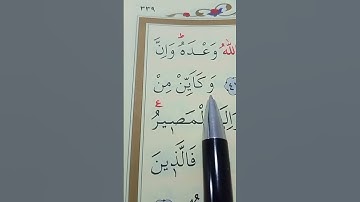 ٣٣٩
اللّٰهُ وَعْدَهُ وَاِنَّ
وَكَاَيِّنْ مِنْ
وَاِلَيَّ الْمَصٖيرُ
فَالَّذٖينَ